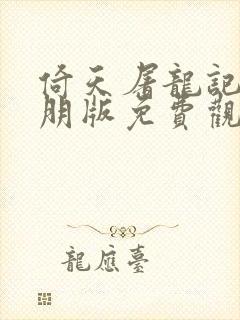 倚天屠龍記
朋版免費觀
龍應臺